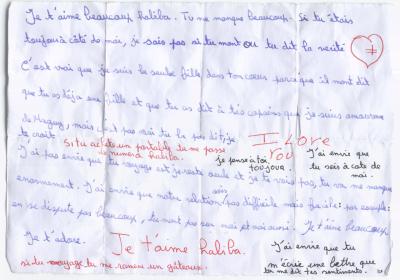 Je t'aime beaucoup haliba. Tu me manque beaucoup. Si tu étais
toujour à côté de moi, je sais pas si tu ment ou tu dit la verité
C'est vrai que je suis la seule fille dans ton cœur parce que il m'ont dit
que tu as déja une fille et que tu as dit à tes copains que je suis amoureuse
de Maguy, mais c'est pas moi tu l'a pas dit je
te croit.
Si tu achète un portable tu me passe
ton numéro haliba.
I Love
You
je pense a toi
toujour.
J'ai envie que
tu sois à cote de
moi.
J'ai pas envie que tu voyages et je reste seule et je te vois pas, tu va me manque
enormement. J'ai envie que notre relation sois pas difficile mais facile: par exemple:
on se dispute pas beaucoup, tu ment pas sur moi et moi aussi. Je t'aime beaucoup
Je t'adore.
Je t'aime haliba.
si tu voyage tu me ramène un gâteaux.
J'ai envie que tu
m'écrise une lettre que
tu me dit tes sentiments.